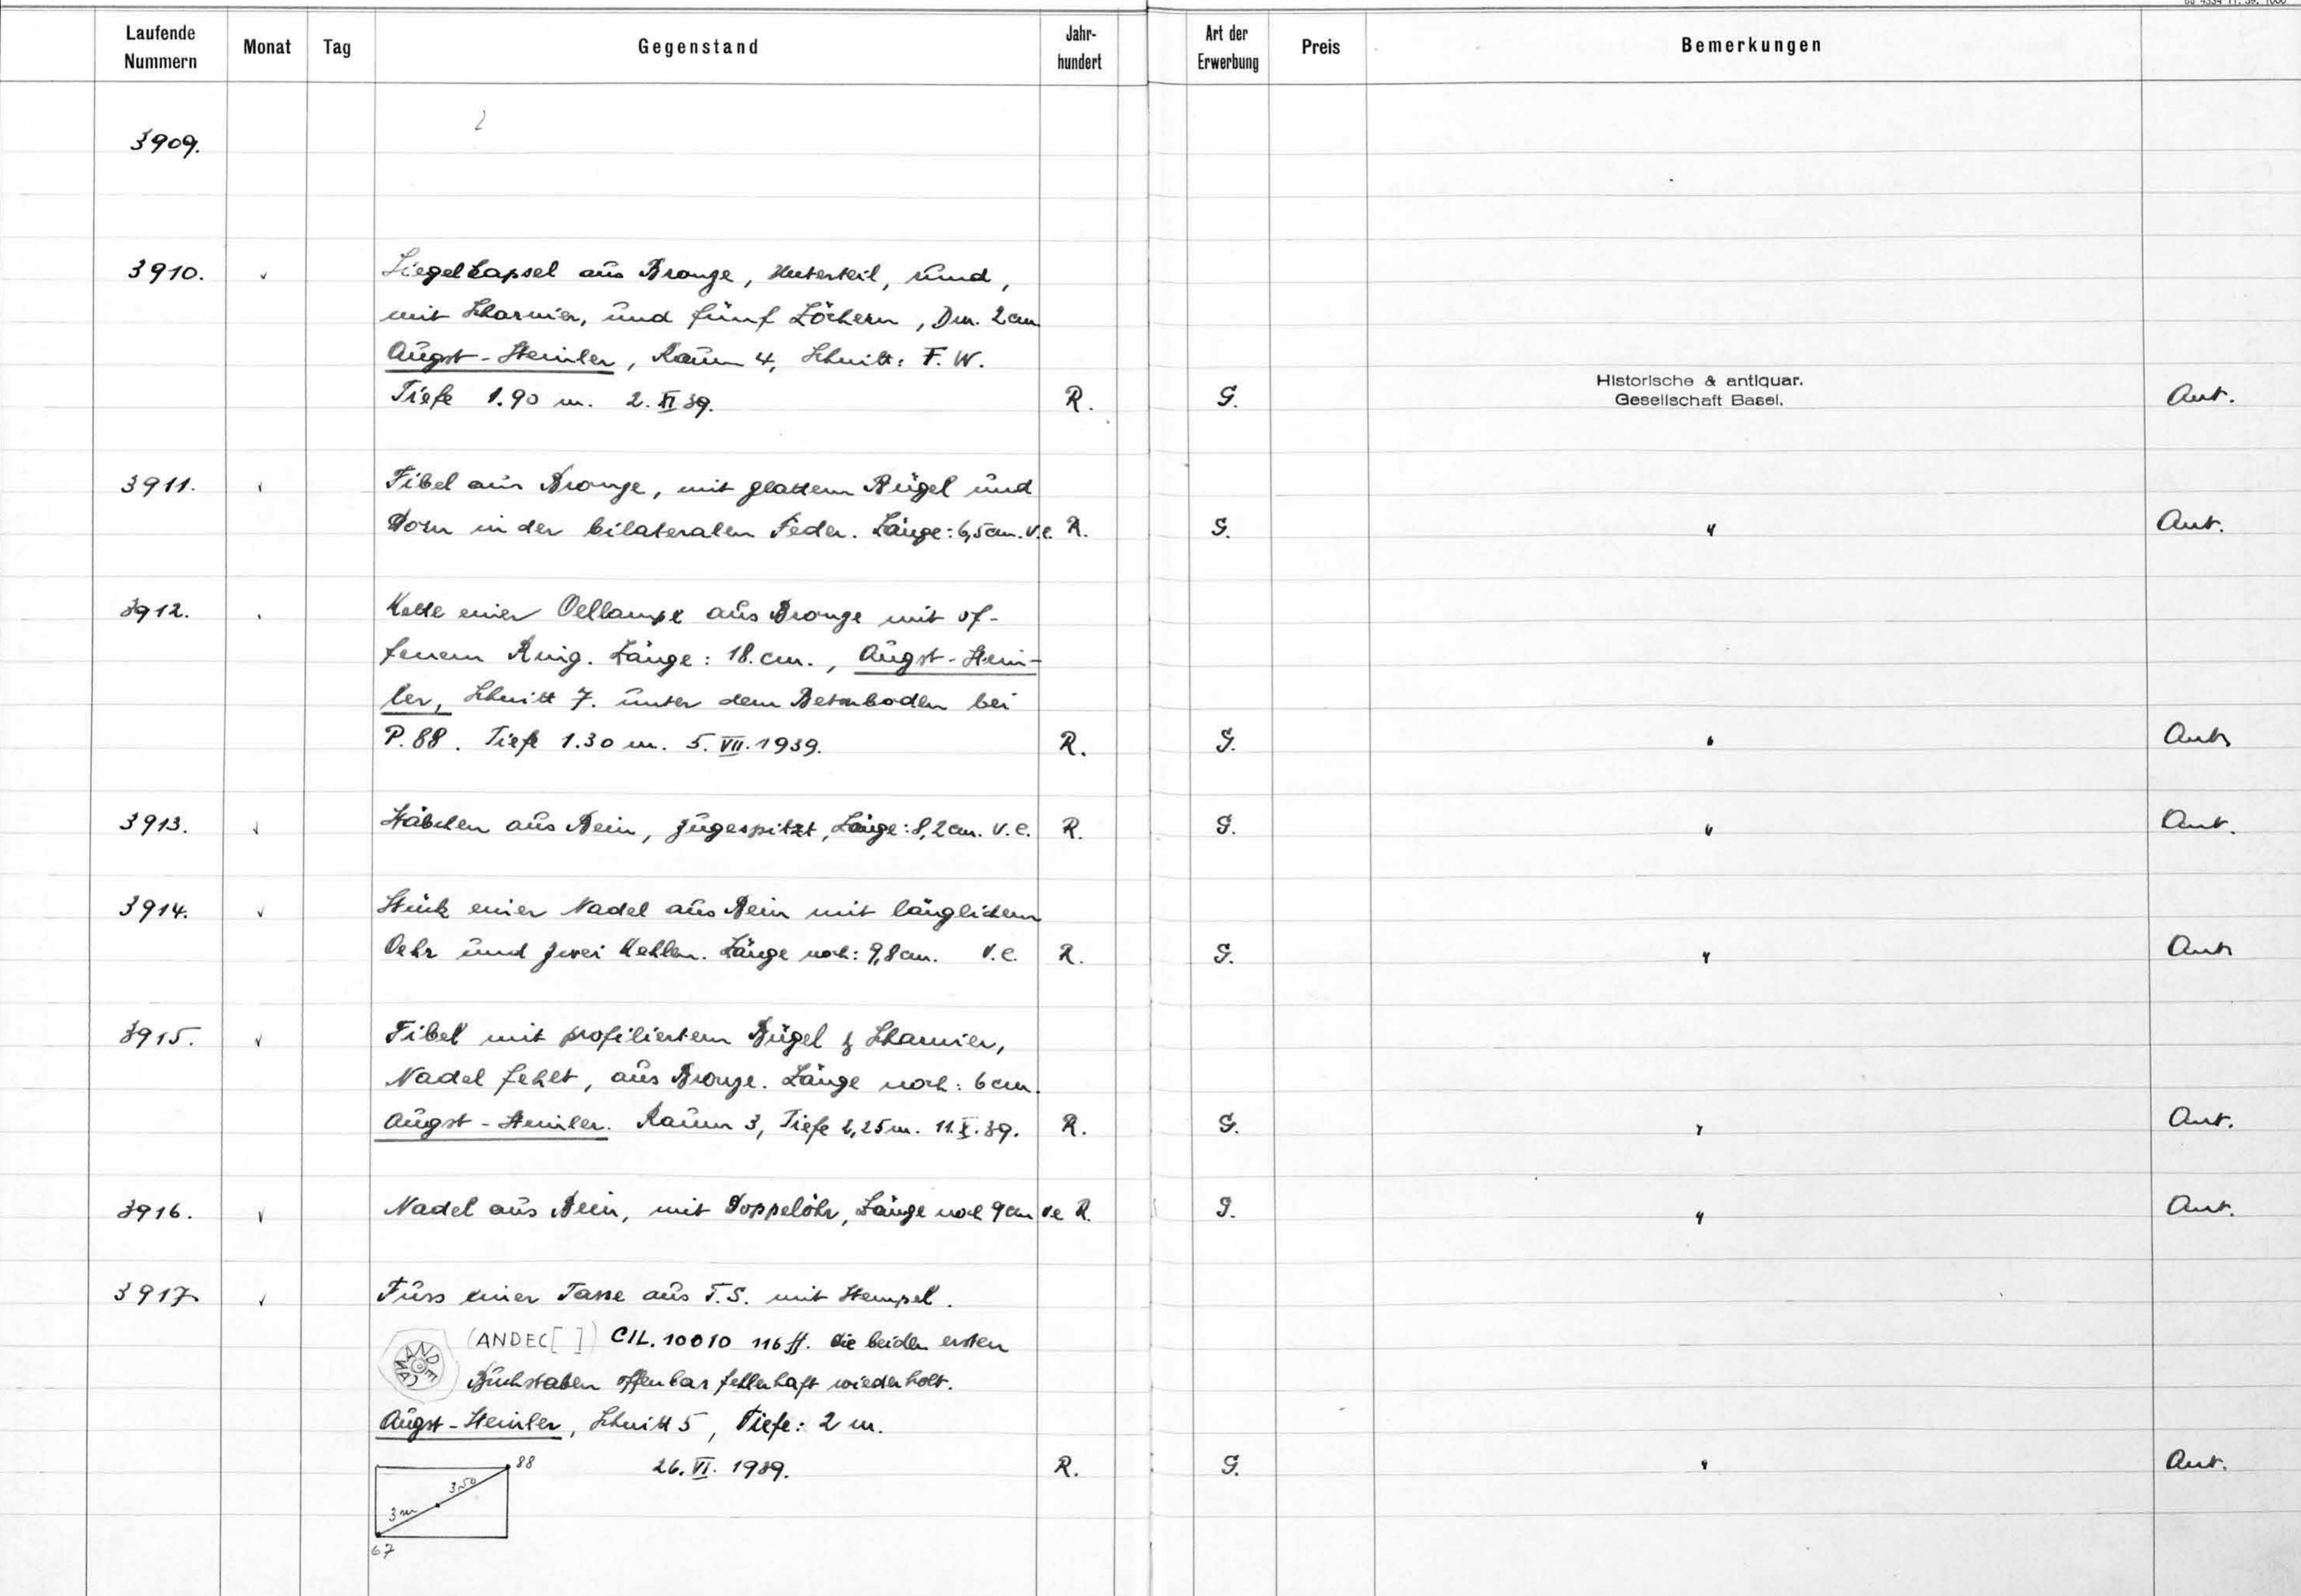 Laufende Nummern Monat Tag Gegenstand Jahr-hundert Art der Erwerbung Preis Bemerkungen
3909.
3910. Siegelkapsel aus Bronze, Unterteil, rund,
mit Scharnier, und fünf Löchern, Dm. 2 cm
Augst-Steinler, Raum 4, Schnitt: F. W.
Historische & antiquar.
Gesellschaft Basel.
Tiefe 1.90 m. 2. XI 39. R. G. Ant.
3911. Fibel aus Bronze, mit glattem Bügel und
Dorn in der bilateralen Feder. Länge: 6,5 cm. v.e. R. G. " Ant.
3912. Kette einer Oellampe aus Bronze mit of-
fenem Ring. Länge: 18. cm., Augst-Stein-
ler, Schnitt 7. unter dem Betonboden bei
P. 88. Tiefe 1.30 m. 5. VII. 1939. R. G. " Ant.
3913. Stäbchen aus Bein, zugespitzt, Länge: 8,2 cm. v.e. R. G. " Ant.
3914. Stück einer Nadel aus Bein mit länglichem
Oehr und zwei Kehlen. Länge noch: 9,8 cm. v.e. R. G. " Ant.
3915. Fibel mit profiliertem Bügel & Scharnier,
Nadel fehlt, aus Bronze. Länge noch: 6 cm.
Augst-Steinler. Raum 3, Tiefe 2,25 m. 11. X. 39. R. G. " Ant.
3916. Nadel aus Bein, mit Doppelöhr, Länge noch 9 cm v.e R. G. " Ant.
3917. Fuss einer Tasse aus T.S. mit Stempel.
(ANDEC[ ]) CIL. 10010 116 ff. die beiden ersten
ANDECAN
Buchstaben offenbar fehlerhaft wiederholt.
Augst-Steinler, Schnitt 5, Tiefe: 2 m.
88 26. VI. 1939. R. G. " Ant.
3.50
3 m
67